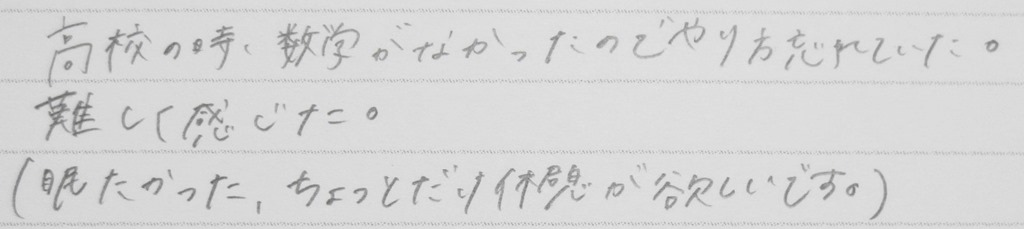 高校の時、数学がなかったのでやり方忘れていた。
難しく感じた。
(眠たかった, ちょっとだけ休憩が欲しいです。)